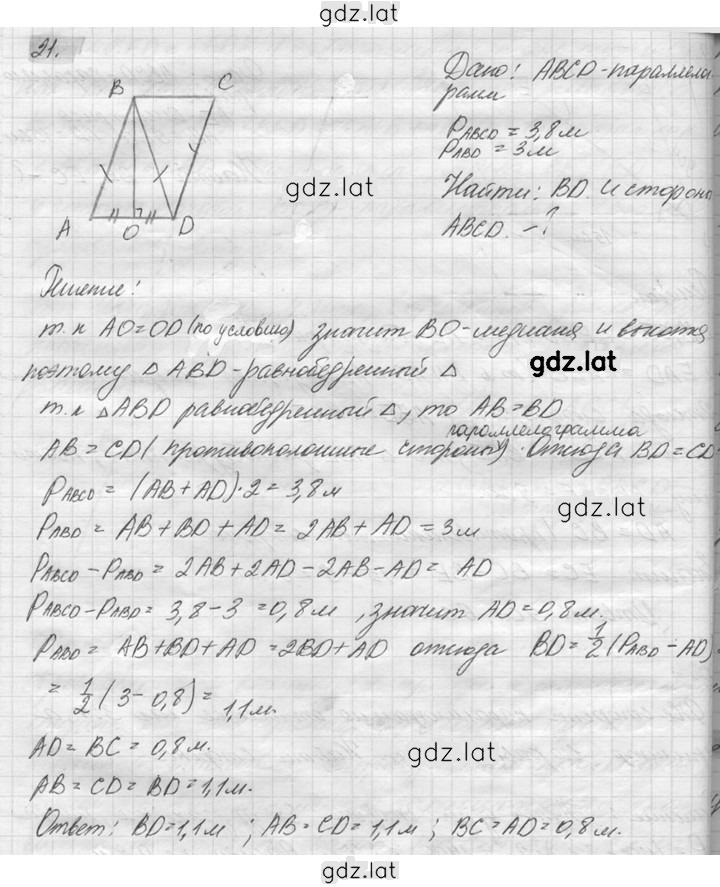 gdz.lat
21.
B C
A O D
Дано: ABCD - параллелограмм
P_ABCD = 3,8 м
P_ABD = 3 м
Найти: BD и стороны
ABCD. - ?
gdz.lat
Решение:
т.к AO = OD (по условию) значит BO - медиана и высота
поэтому △ ABD - равнобедренный △
gdz.lat
т.к △ABD равнобедренный △, то AB = BD
параллелограмма
AB = CD (противоположные стороны). Отсюда BD = CD
P_ABCD = (AB + AD) · 2 = 3,8 м
gdz.lat
P_ABD = AB + BD + AD = 2AB + AD = 3 м
P_ABCD - P_ABD = 2AB + 2AD - 2AB - AD = AD
P_ABCD - P_ABD = 3,8 - 3 = 0,8 м, значит AD = 0,8 м.
P_ABD = AB + BD + AD = 2BD + AD отсюда BD = 1/2 (P_ABD - AD)
= 1/2 (3 - 0,8) = 1,1 м.
AD = BC = 0,8 м.
gdz.lat
AB = CD = BD = 1,1 м.
Ответ: BD = 1,1 м ; AB = CD = 1,1 м ; BC = AD = 0,8 м.
gdz.lat